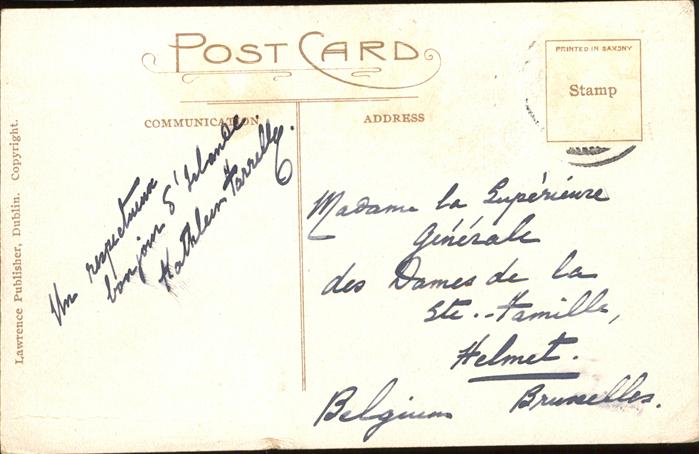 POST CARD
PRINTED IN SAXONY
Stamp
COMMUNICATION
ADDRESS
Lawrence Publisher, Dublin. Copyright.
Un respectueux
bonjour d'Irlande.
Kathleen Farrelly.
Madame la Supérieure
Générale
des Dames de la
Ste.-Famille,
Helmet.
Bruxelles.
Belgium